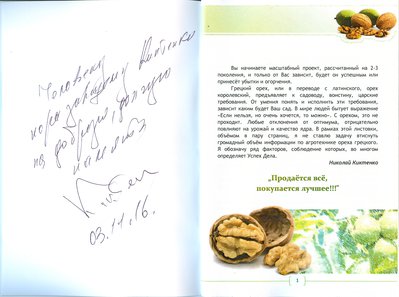 Человеку
на добрую, долгую
память
03.11.16.
Вы начинаете масштабный проект, рассчитанный на 2-3
поколения, и только от Вас зависит, будет он успешным или
принесёт убытки и огорчения.
Грецкий орех, или в переводе с латинского, орех
королевский, предъявляет к садоводу, воистину, царские
требования. От умения понять и исполнить эти требования,
зависит каким будет Ваш сад. В мире людей мы выражаемся
«Если нельзя, но очень хочется, то можно». С орехом, это не
проходит. Любые отклонения от оптимума, отрицательно
повлияют на урожай и качество ядра. В рамках этой листовки,
объёмом в пару страниц, я не ставлю задачу втиснуть
громадный объём информации по агротехнике ореха грецкого.
Я обозначу ряд факторов, соблюдение которых, во многом
определяет Успех Дела.
Николай Киктенко
„Продаётся всё,
покупается лучшее!!!"
1